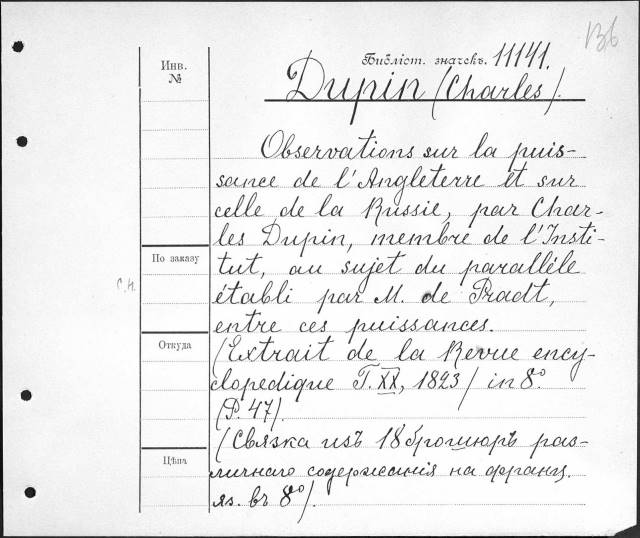 Вб
Библіот. значекъ. 11141.
Инв.
№
Dupin (Charles).
Observations sur la puis-
sance de l'Angleterre et sur
celle de la Russie, par Char-
les Dupin, membre de l'Insti-
По заказу
tut, au sujet du parallèle
С.Н.
établi par M. de Pradt,
entre ces puissances.
Откуда
(Extrait de la Revue ency-
clopedique T. XX, 1823) in 8º.
(P. 47).
(Связка изъ 18 брошюръ раз-
Цѣна
личнаго содержанія на франц.
яз. въ 8º).